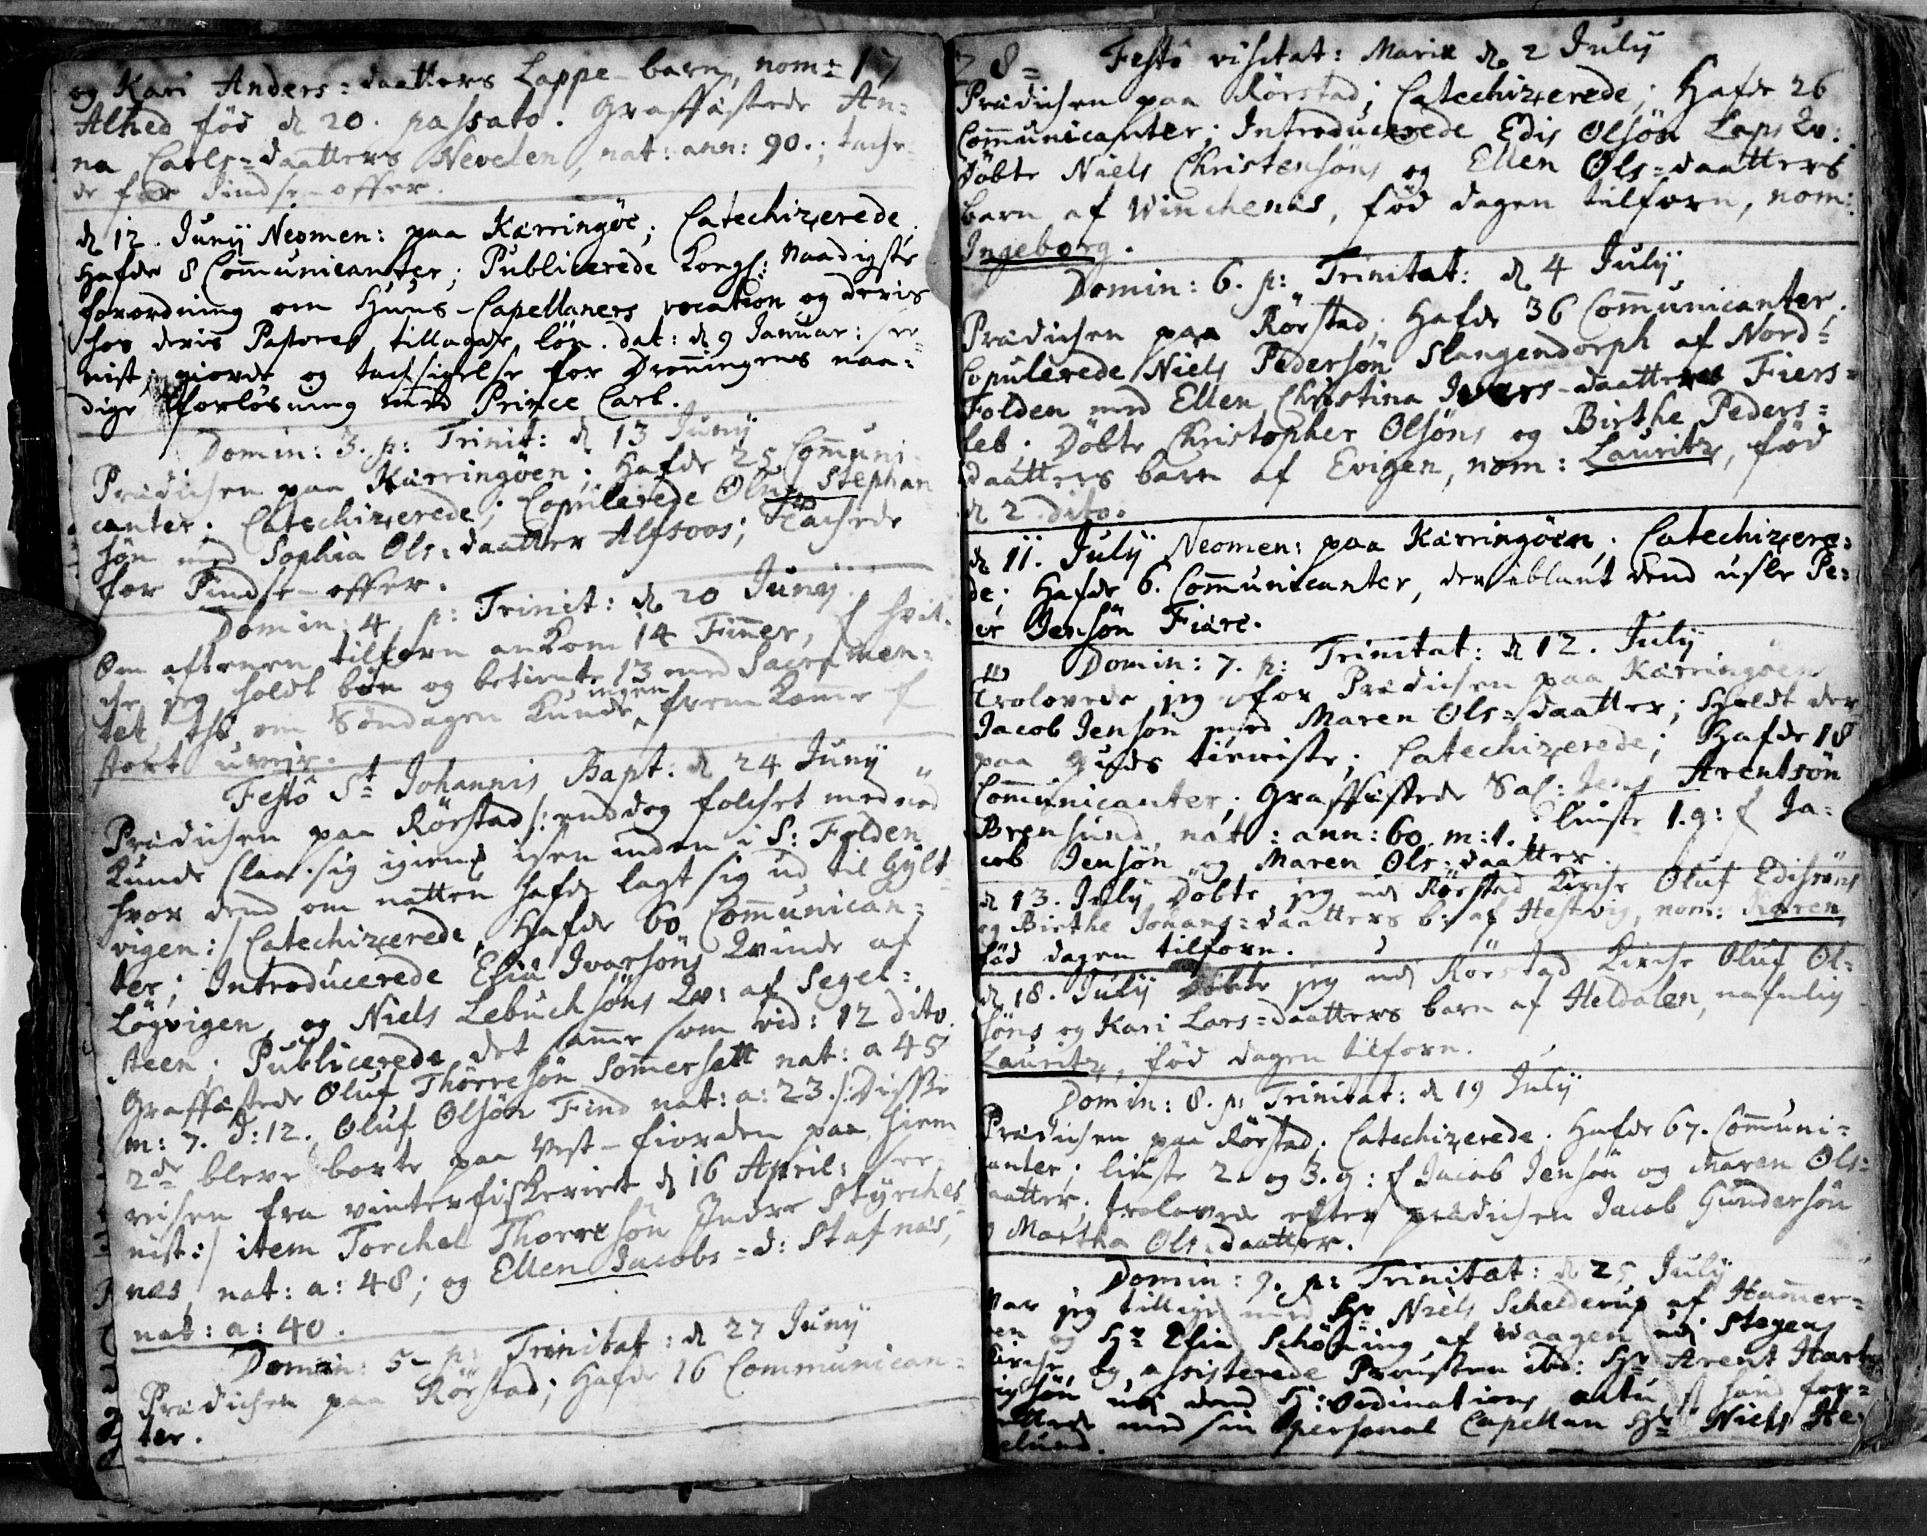 17
og Kari Anders=daatters Lappe-barn, nom:
Alhed fød d 20. passato. Graffæstede An=
na Carls=daatters Nevelen, nat: ann: 90.; tache
de for Pindse-offer.
d 12. Junij Neomen: paa Kærringøe; Catechizerede.
Hafde 8 Communicanter; Publicerede Kongl: Naadigste
forordning om Huus-Capellaners vocation og deris
hos deris Pastores tillagde løn. dat: d 9 Januar: se=
nist; giorde og tachsigelse for Dronningens naa=
dige forløsning med Prince Carl.
Domin: 3. p: Trinit: d 13 Junij
Prædichen paa Kærringøen; Hafde 25 Communi=
canter; Catechizerede; Copulerede Oluf Stephan
søn med Sophia Ols=daatter Alfsoos; Tachede
for Pindse-offer.
Domin: 4. p: Trinit: d 20 Junij.
Om aftenen tilforn ankom 14 Finner, f hvil=
che jeg holdt bøn og betiente 13 med Sacramen=
tet, thi om Søndagen kunde ingen fremkomme f
stort uveir.
Festo St Johannis Bapt: d 24 Junij
Prædichen paa Rørstad /: end dog folchet med nød
kunde slaa sig igiennem isen inden i S: Folden
hvor dend om natten hafde lagt sig ud til Gylt=
vigen :/ Catechizerede, Hafde 60 Communican=
ter; Introducerede Elia Ivarsøns Qvinde af
Løgvigen, og Niels Lebuchsøns Qv: af Segel=
steen; Publicerede det samme som vid: 12 dito.
Graffæstede Oluf Thørresøn Sommersett nat: a 45
m: 7. d: 12., Oluf Olsøn Find nat: a: 23. /: Disse
2de bleve borte paa Vest-fiorden paa hiem
reisen fra vinterfiskeriet d 16 April: se=
nist :/ item Torchel Thorresøn Indre Styrches
næs, nat: a: 48; og Ellen Jacobs=d: Stafnæs,
nat: a: 40.
Domin: 5. p: Trinitat: d 27 Junij
Prædichen paa Rørstad; Hafde 16 Communican=
ter.
28= Festo visitat: Mariæ d 2 Julij
Prædichen paa Rørstad; Catechizerede; Hafde 26
Communicanter; Introducerede Edis Olsøn Laps Qv:
Døbte Niels Christensøns og Ellen Ols=daatters
barn af Winchenes, fød dagen tilforn, nom:
Ingeborg.
Domin: 6. p: Trinitat: d 4 Julij
Prædichen paa Rørstad; Hafde 36 Communicanter.
Copulerede Niels Pedersøn Slangendorph af Nord=
Folden med Ellen Christina Ivers-daatter Fiers=
leb; Døbte Christopher Olsøns og Birthe Peders=
daatters barn af Evigen, nom: Lauritz, fød
d 2. dito.
d 11. Julij Neomen: paa Kærringøen; Catechizere=
de; Hafde 6. Communicanter, der iblant dend usle Pe=
der Jensøn Fiære.
Domin: 7. p: Trinitat: d 12. Julij
Trolovede jeg for Prædichen paa Kærringøen
Jacob Jensøn med Maren Ols=daatter; Holdt der
paa Guds tieniste; Catechizerede; Hafde 18
Communicanter; Graffæstede Sal: Jens Arentsøn
Brensund, nat: ann: 60. m: 1.; Liuste 1. g: f Ja=
cob Jensøn og Maren Ols=daatter.
d 13. Julij Døbte jeg udi Rørstad Kirche Oluf Edisøns
og Birthe Johans=daatters b: af Hestvig, nom: Karen,
fød dagen tilforn.
d 18. Julij Døbte jeg udi Rørstad Kirche Oluf Ol=
søns og Kari Lars=daatters barn af Heldalen, nafnlig
Lauritz, fød dagen tilforn.
Domin: 8. p: Trinitat: d 19 Julij
Prædichen paa Rørstad; Catechizerede; Hafde 67. Communi=
canter; liuste 2. og 3. g: f Jacob Jensøn og Maren Ols=
daatter; trolovede efter prædichen Jacob Gundersøn
og Martha Ols=daatter.
Domin: 9. p: Trinitat: d 25 Julij
Var jeg tillige med Hr Niels Schelderup af Hammer=
øen og Hr Elia Schøning af Vaagen udi Stegens
Kirche, og assisterede Prousten ibd: Hr Arent Hart=
vigsøn udi dend H: Ordinations actu hand for=
rettede med sin personal Capellan Hr Niels He=
gelund.